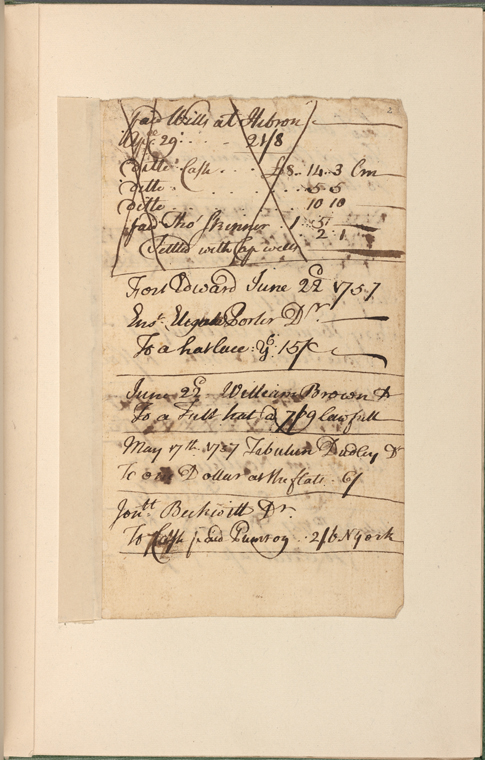 2
paid Wills at Hebron
29 21/8
Ditto Cash £8..14..3 Cm
Ditto 5 5
Ditto 10 10
paid Tho Skinner 1 5
2 1
Settled with Cap wells
Fort Edward June 22d 1757
Ens. Porter Dr.
To a hat lace 15/
June 22d William Brown Dr
To a Felt hat @ 7/09 lawfull
May 17th 1757 Dudley Dr
To one Dollar at the flats 6/
Jontt Beckwitt Dr.
To Cash paid Pumroy 2/6 N York